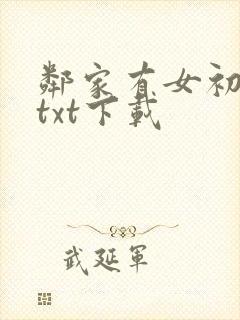 鄰家有女初
txt下載
武延軍